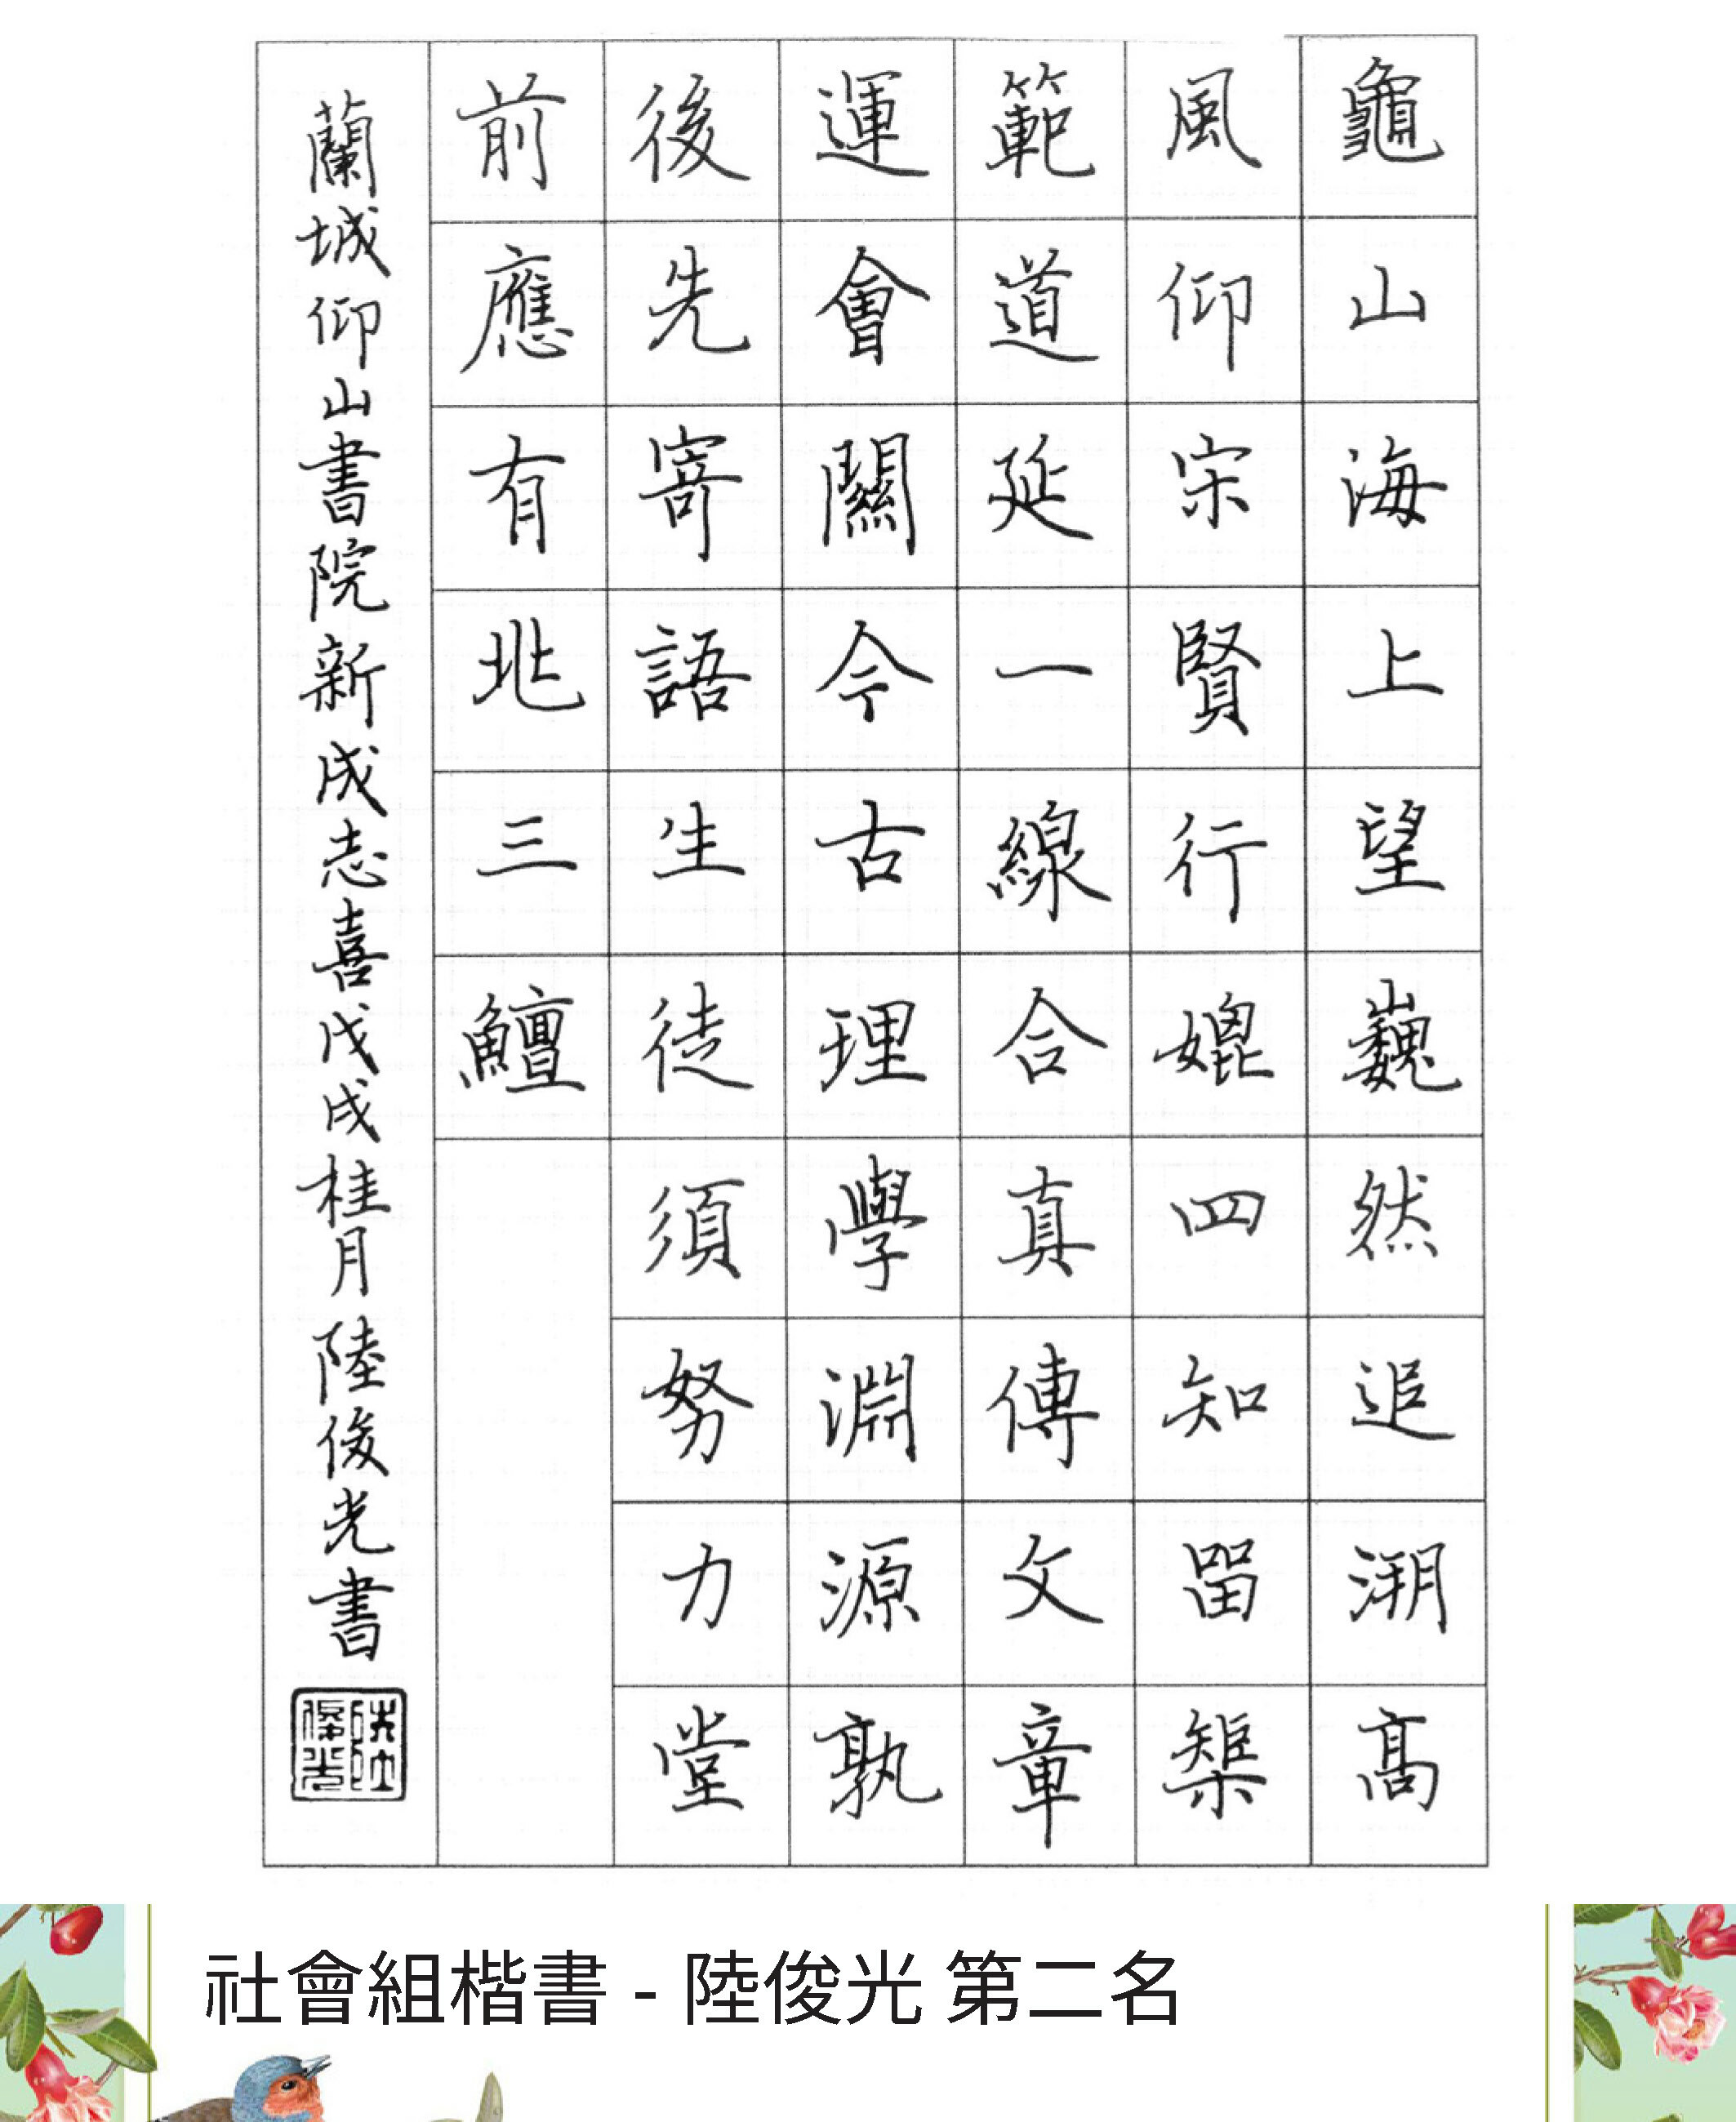 龜山海上望巍然追溯高
風仰宋賢行媲四知留榘
範道延一線合真傳文章
運會關今古理學淵源孰
後先寄語生徒須努力堂
前應有兆三鱣
蘭城仰山書院新成志喜戊戌桂月陸俊光書
陸俊光
社會組楷書 - 陸俊光 第二名